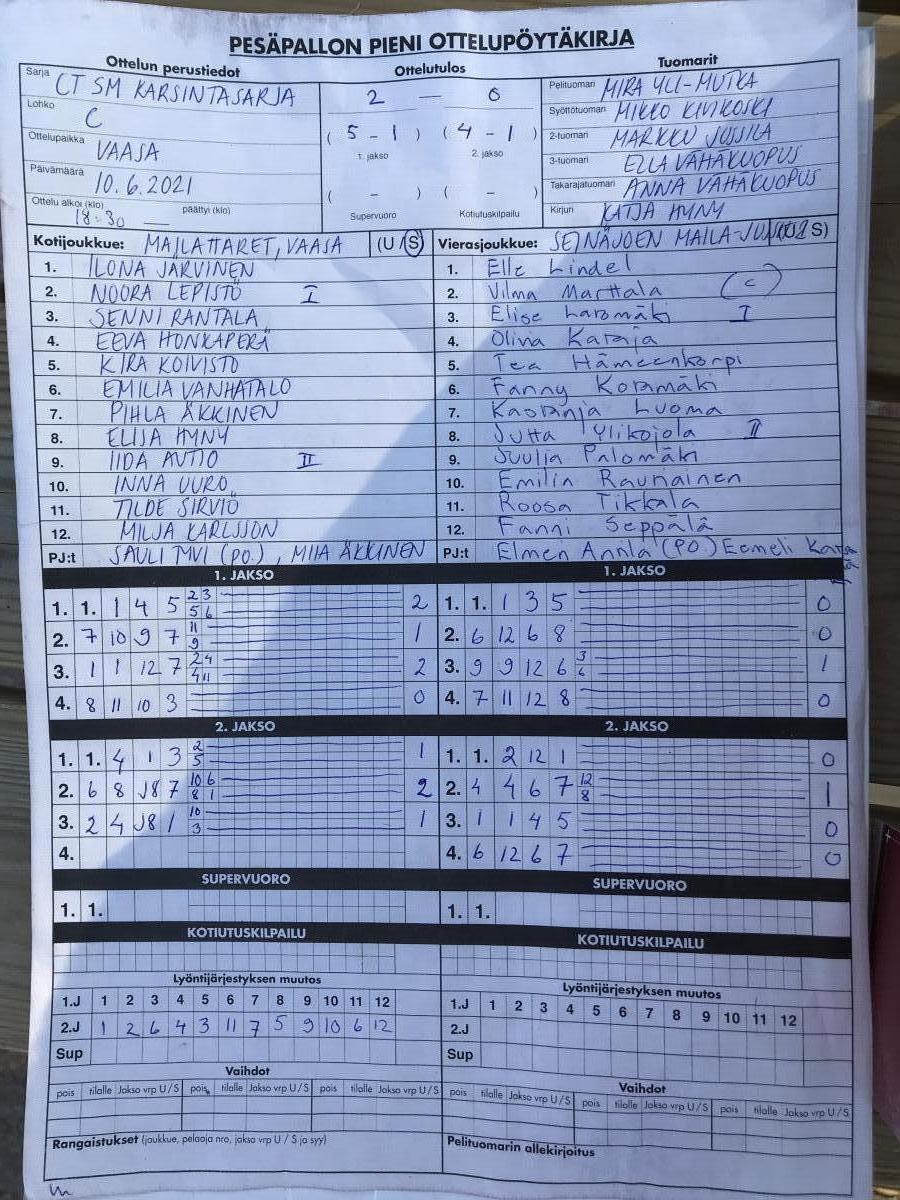 PESÄPALLON PIENI OTTELUPÖYTÄKIRJA
Ottelun perustiedot
Sarja CT SM KARSINTASARJA
Lohko C
Ottelupaikka VAASA
Päivämäärä 10.6.2021
Ottelu alkoi (klo) 18:30 päättyi (klo)
Ottelutulos
2 — 0
( 5 - 1 ) ( 4 - 1 )
1. jakso 2. jakso
( - ) ( - )
Supervuoro Kotiutuskilpailu
Tuomarit
Pelituomari MIRA YLI-MUTKA
Syöttötuomari MIKKO KIVIKOSKI
2-tuomari MARKKU JUSSILA
3-tuomari ELLA VÄHÄKUOPUS
Takarajatuomari ANNA VÄHÄKUOPUS
Kirjuri KATJA HYNY
Kotijoukkue: MAILATTARET, VAASA (U / S)
1. ILONA JÄRVINEN
2. NOORA LEPISTÖ I
3. SENNI RANTALA
4. EEVA HONKAPERÄ
5. KIRA KOIVISTO
6. EMILIA VANHATALO
7. PIHLA ÄKKINEN
8. ELISA HYNY
9. IIDA AUTIO II
10. INNA UURO
11. TILDE SIRVIÖ
12. MILJA KARLSSON
PJ:t SAULI (PO), MIIA ÄKKINEN
Vierasjoukkue: SEINÄJOEN MAILA-JUNIORIT (U / S)
1. Elle Lindel
2. Vilma Marttala (C)
3. Elise I
4. Olivia Karaja
5. Tea Hämeenkorpi
6. Fanny Koramäki
7. Luoma
8. Jutta Ylikojola II
9. Juulia Palomäki
10. Emilia Raunainen
11. Roosa Tikkala
12. Fanni Seppälä
PJ:t Elmeri Annla (PO) Eemeli
1. JAKSO
1. 1. 1 4 5 2 3 2
5 6
2. 7 10 9 7 11 1
9
3. 1 1 12 7 2 4 2
4 11
4. 8 11 10 3 0
1. JAKSO
1. 1. 1 3 5 0
2. 6 12 6 8 0
3. 9 9 12 6 3 1
6
4. 7 11 12 8 0
2. JAKSO
1. 1. 4 1 3 2 1
5
2. 6 8 J8 7 10 6 2
8 1
3. 2 4 J8 1 10 1
3
4.
2. JAKSO
1. 1. 2 12 1 0
2. 4 4 6 7 12 1
8
3. 1 1 4 5 0
4. 6 12 6 7 0
SUPERVUORO
1. 1.
SUPERVUORO
1. 1.
KOTIUTUSKILPAILU
KOTIUTUSKILPAILU
Lyöntijärjestyksen muutos
1.J 1 2 3 4 5 6 7 8 9 10 11 12
2.J 1 2 6 4 3 11 7 5 9 10 6 12
Sup
Lyöntijärjestyksen muutos
1.J 1 2 3 4 5 6 7 8 9 10 11 12
2.J
Sup
Vaihdot
pois tilalle Jakso vrp U / S pois tilalle Jakso vrp U / S pois tilalle Jakso vrp U / S
Vaihdot
pois tilalle Jakso vrp U / S pois tilalle Jakso vrp U / S pois tilalle Jakso vrp U / S
Rangaistukset (joukkue, pelaaja nro, jakso vrp U / S ja syy)
Pelituomarin allekirjoitus